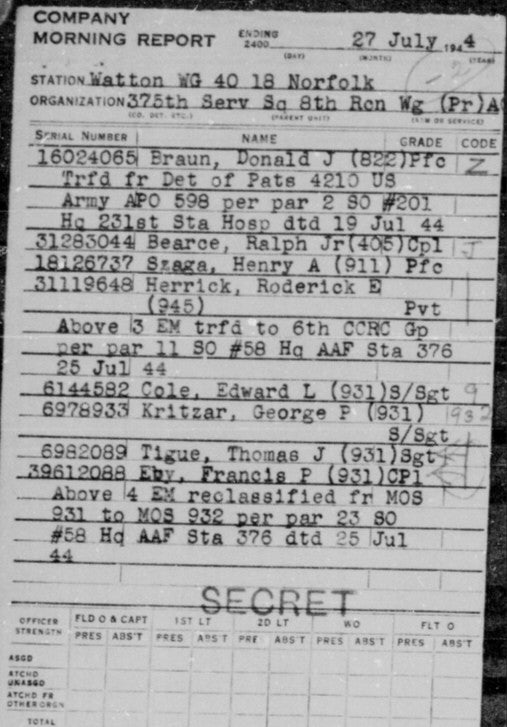 COMPANY
MORNING REPORT ENDING 2400 27 July 1944
(DAY) (MONTH) (YEAR)
STATION Watton WG 40 18 Norfolk
ORGANIZATION 375th Serv Sq 8th Rcn Wg (Pr)
(CO. DET. ETC.) (PARENT UNIT) (ARM OR SERVICE)
SERIAL NUMBER NAME GRADE CODE
16024065 Braun, Donald J (822)Pfc Z
Trfd fr Det of Pats 4210 US
Army APO 598 per par 2 SO #201
Hq 231st Sta Hosp dtd 19 Jul 44
31283044 Bearce, Ralph Jr(405)Cpl J
18126737 Szaga, Henry A (911) Pfc
31119648 Herrick, Roderick E
(945) Pvt
Above 3 EM trfd to 6th CCRC Gp
per par 11 SO #58 Hq AAF Sta 376
25 Jul 44
6144582 Cole, Edward L (931)S/Sgt 9
6978933 Kritzar, George P (931) 932
S/Sgt
6982089 Tigue, Thomas J (931)Sgt
39612088 Eby, Francis P (931)CPl
Above 4 EM reclassified fr MOS
931 to MOS 932 per par 23 SO
#58 Hq AAF Sta 376 dtd 25 Jul
44
SECRET
OFFICER STRENGTH FLD O & CAPT 1ST LT 2D LT WO FLT O
PRES ABS'T PRES ABS'T PRE ABS'T PRES ABS'T PRES ABS'T
ASGD
ATCHD UNASGD
ATCHD FR OTHER ORGN
TOTAL